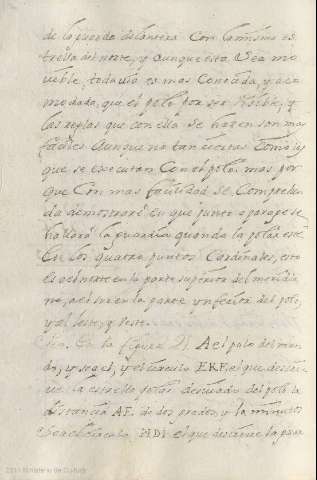 de la guarda delantera con la misma es
trella del norte, y aunque esta sea mo
uible, todauia es mas conocida, y aco
modada, que el polo por ser visible, y
las reglas que con ella se hazen son mas
faciles aunque no tan ciertas como las
que se executan con el polo, mas por
que con mas facilidad se comprehen
da demostraré en que punto o parage se
hallará la guarda quando la polar esté
en los quatro puntos Cardinales, esto
es al norte en la parte superior del meridia
no, al sur en la parte ynferior del polo,
y al leste, y oeste.
Sea en la figura A el polo del mun
do, y sea el, y el circulo EKF, el que descri
ue la estrella polar desuiada del polo la
distancia AE de dos grados, y minutos
sea el circulo HDI el que descriue la guar
2011 Ministerio de Cultura